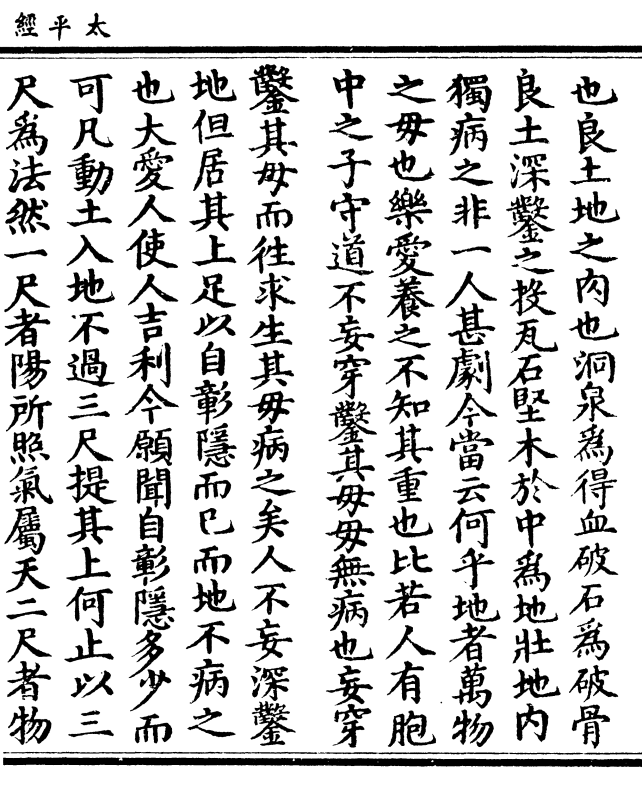 太平經
也良土地之肉也洞泉爲得血破石爲破骨
良土深鑿之投瓦石堅木於中爲地壯地内
獨病之非一人甚劇今當云何乎地者萬物
之母也樂愛養之不知其重也比若人有胞
中之子守道不妄穿鑿其母母無病也妄穿
鑿其母而往求生其母病之矣人不妄深鑿
地但居其上足以自彰隱而已而地不病之
也大愛人使人吉利今願聞自彰隱多少而
可凡動土入地不過三尺提其上何止以三
尺爲法然一尺者陽所照氣屬天二尺者物